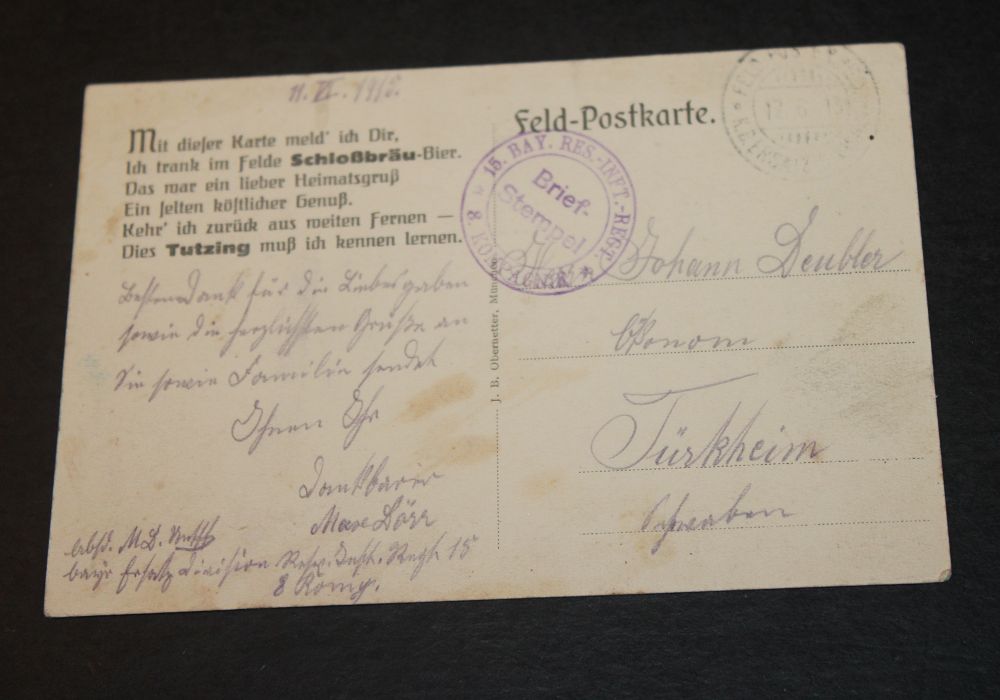 11. VI. 1915.
Mit dieser Karte meld' ich Dir,
Ich trank im Felde Schloßbräu-Bier.
Das war ein lieber Heimatsgruß
Ein selten köstlicher Genuß.
Kehr' ich zurück aus weiten Fernen —
Dies Tutzing muß ich kennen lernen.
Besten Dank für die Liebesgaben
sowie die herzlichsten Grüße an
Sie sowie Familie sendet
Ihnen Ihr
Dankbarer
Max Dörr
Absd. M D.
bayr Ersatz Division Res. Inft. Regt 15
8 Komp.
J. B. Obernetter, München
Feld-Postkarte.
15. BAY. RES.-INFT.-REGT.
8. KOMPAGNIE
Brief-
Stempel
FELDPOST
12. 6.
K.B. ERSATZ
Johann Deubler
Ökonom
Türkheim
Schwaben